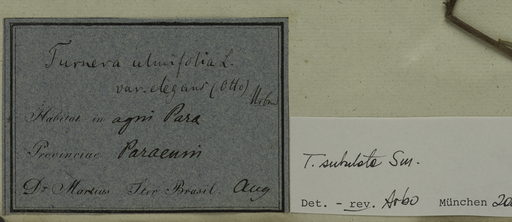 Turnera ulmifolia L.
var. elegans (Otto)
Urban
Habitat in agri Para
Provinciae Paraensi
Dr. Martius Iter Brasil. Aug
T. subulata Sm.
Det. - rev. Arbo München 20